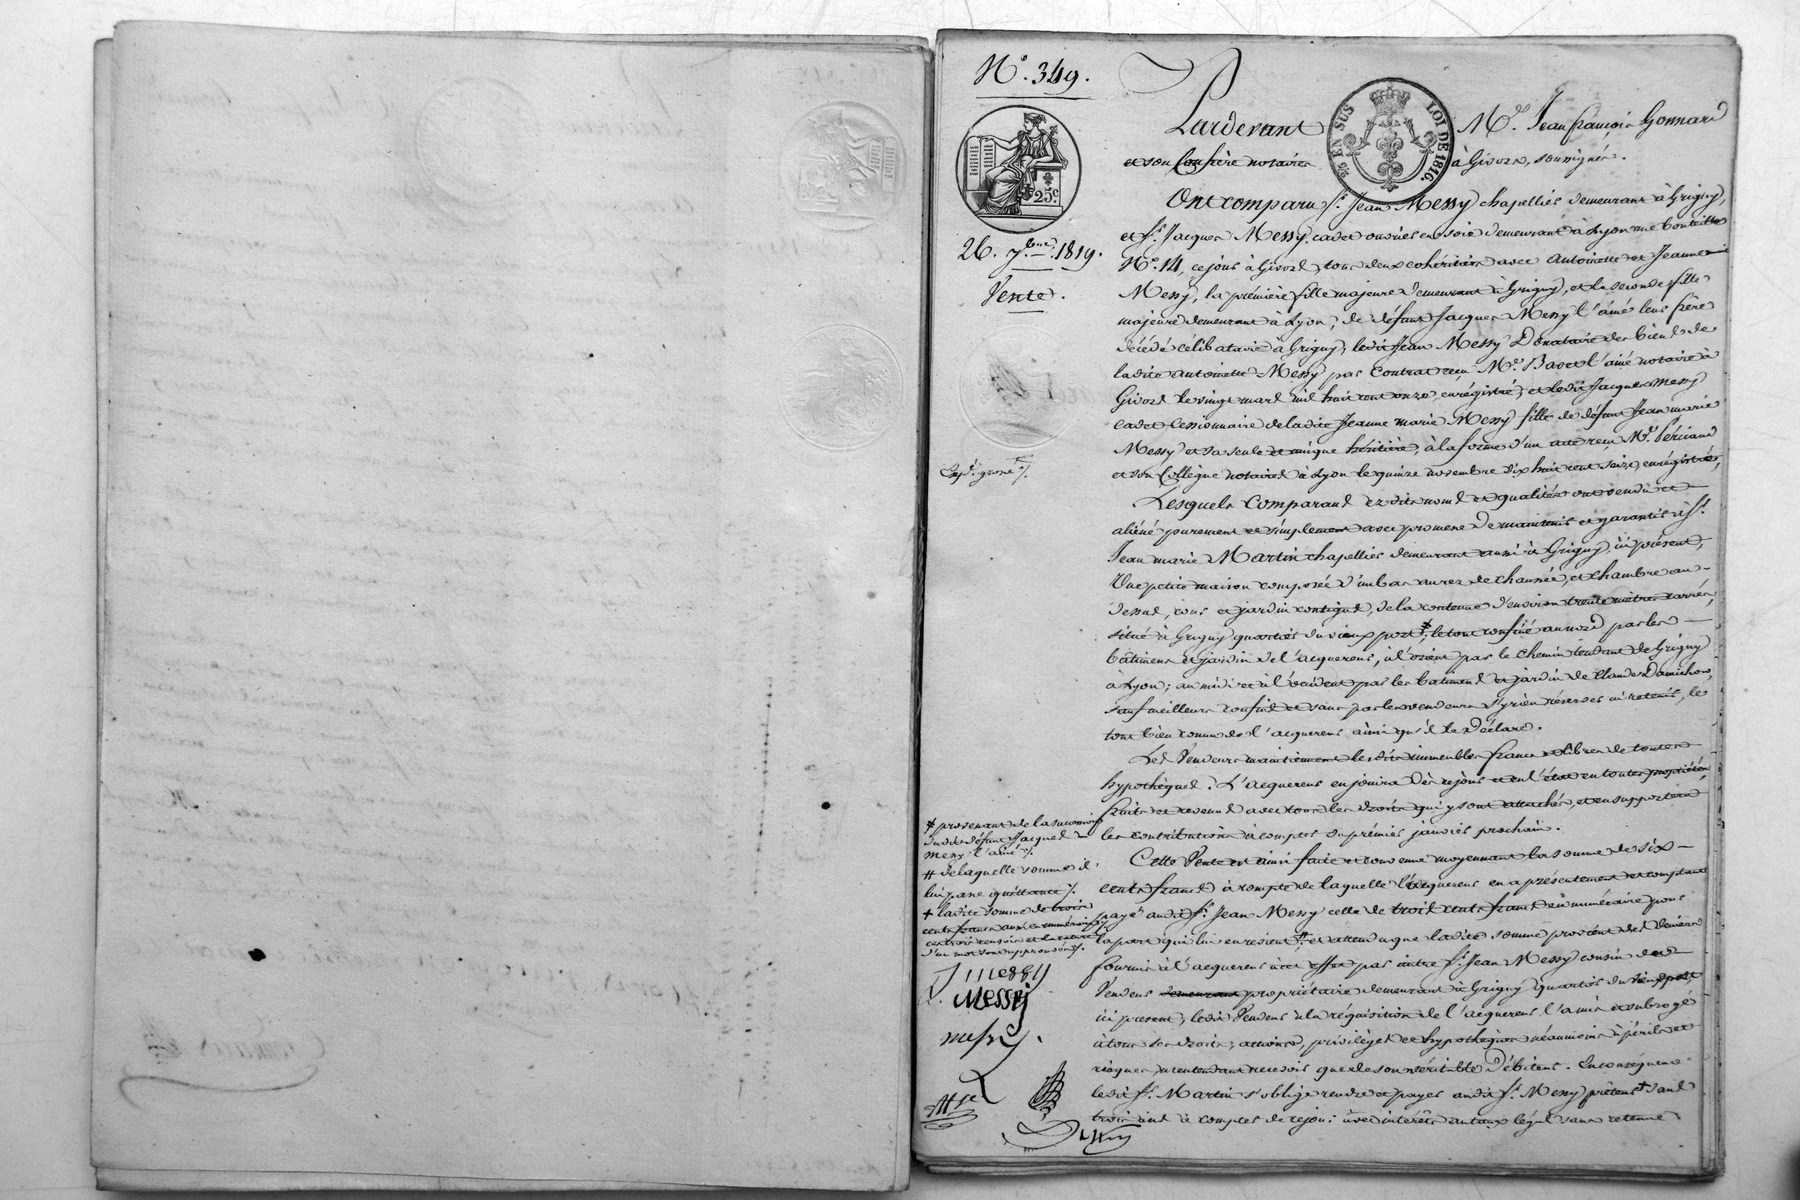 N.° 349.
25.c
25 EN SUS
LOI DE 1816.
26. 7.bre 1819.
Vente.
Pardevant M.e Jean françois Gonnard
et son Confrère notaires à Givors, soussignés.
Ont comparu S.r Jean Messy chapellier demeurant à Grigny,
et S.r Jacques Messy cadet ouvrier en soie demeurant à Lyon rue
N.° 14, ce jour à Givors, tous deux cohéritiers avec Antoinette et Jeanne marie
Messy, la première fille majeure demeurant à Grigny, et la seconde fille
majeure demeurant à Lyon, de défunt Jacques Messy l'ainé leur frère
décédé célibataire à Grigny; ledit Jean Messy Donataire des biens de
ladite Antoinette Messy par Contrat reçu M.e l'ainé notaire à
Givors le vingt mars mil huit cent onze, enrégistré; et ledit Jacques Messy
cadet Cessionnaire de ladite Jeanne marie Messy fille de défunt Jean marie
Messy et sa seule et unique héritière, à la forme d'un acte reçu M.e
et son Collègue notaires à Lyon le quinze novembre dix huit cent seize, enrégistré,
Lesquels Comparans ezdits noms et qualités ont vendu et
aliéné purement et simplement avec promesse de maintenir et garantir à S.r
Jean marie Martin chapellier demeurant aussi à Grigny, ici présent,
Une petite maison composée d'un bas au rez de chaussée, et chambre au-
dessus, cour et jardin contigus, de la contenue d'environ trente mètres carrés,
situé à Grigny quartier du vieux port *, le tout confiné au nord par les
bâtimens et jardin de l'acquereur, à l'orient par le chemin tendant de Grigny
a Lyon; au midi et à l'occident par les batimens et jardin de Claude Damichon,
sauf meilleurs confins et sans par les vendeurs s'y rien réserver ni retenir, le
tout bien connu de l'acquereur ainsi qu'il l'a Déclaré.
Les Vendeurs maintiennent lesdits immeubles francs et libres de toutes
hypothèques. L'acquereur en jouira dès ce jour et en l'état en toutes propriétés,
fruits et revenus avec tous les droits qui y sont attachés, et en supportera
les contributions à compter du prémier janvier prochain.
Cette Vente est ainsi faite et convenue moyennant la somme de six
cents francs à compte de laquelle l'acquereur en a présentement et comptant
payé audit S.r Jean Messy celle de trois cents francs en numéraire pour
la part qui lui en revient #, et attendu que ladite somme provient des deniers
fournis à l'acquereur à cet effet par autre S.r Jean Messy cousin des
Vendeurs demeurant propriétaire demeurant à Grigny quartier du vieux port,
ici présent, ledit Vendeur à la réquisition de l'acquereur l'a mis et subrogé
à tous ses droits, actions, privilèges et hypothèques néanmoins à périls et
risques n'entendant recevoir que de son véritable Débiteur. En conséquence
ledit S.r Martin s'oblige rendre et payer audit S.r Messy prêteur + dans
trois ans à compter de ce jour avec intérêts au taux légal sans retenue
* provenant de la succession
dudit défunt Jacques
Messy l'ainé /.
# de laquelle somme il
lui passe quittance /.
+ ladite somme de trois
cents francs aussi en numéraire /.
ces trois renvois et la rature
d'un mot sont approuvés /.
J Messy
J. Messy
messy.